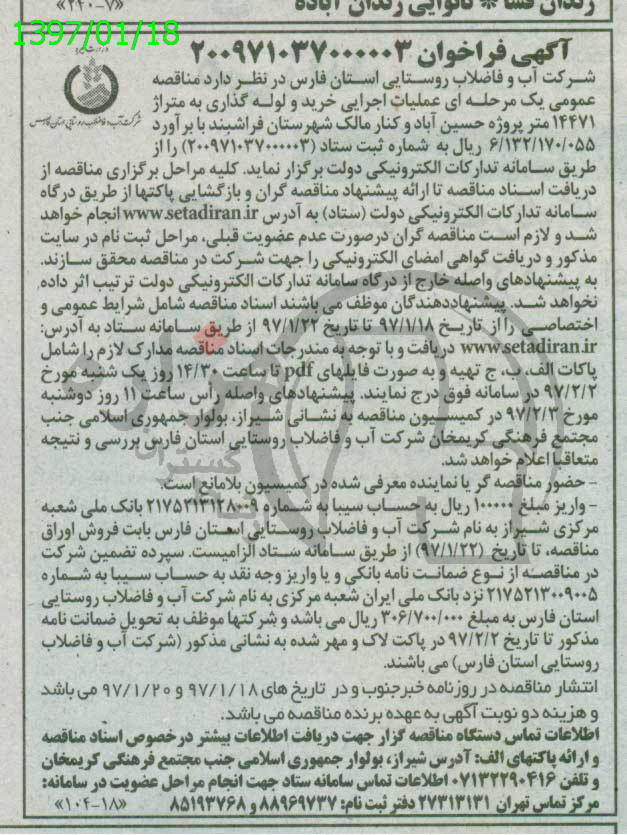 زندان فسا * نانوایی زندان آباده
«۲۴۰-۷»
1397/01/18
آگهی فراخوان ۲۰۰۹۷۱۰۳۷۰۰۰۰۰۳
شرکت آب و فاضلاب روستایی استان فارس در نظر دارد مناقصه
عمومی یک مرحله ای عملیات اجرایی خرید و لوله گذاری به متراژ
شرکت آب و فاضلاب روستایی استان فارس
۱۴۴۷۱ متر پروژه حسین آباد و کنار مالک شهرستان فراشبند با برآورد
۶/۱۳۲/۱۷۰/۰۵۵ ریال به شماره ثبت ستاد (۲۰۰۹۷۱۰۳۷۰۰۰۰۰۳) را از
طریق سامانه تدارکات الکترونیکی دولت برگزار نماید. کلیه مراحل برگزاری مناقصه از
دریافت اسناد مناقصه تا ارائه پیشنهاد مناقصه گران و بازگشایی پاکتها از طریق درگاه
سامانه تدارکات الکترونیکی دولت (ستاد) به آدرس www.setadiran.ir انجام خواهد
شد و لازم است مناقصه گران درصورت عدم عضویت قبلی، مراحل ثبت نام در سایت
مذکور و دریافت گواهی امضای الکترونیکی را جهت شرکت در مناقصه محقق سازند.
به پیشنهادهای واصله خارج از درگاه سامانه تدارکات الکترونیکی دولت ترتیب اثر داده
نخواهد شد. پیشنهاددهندگان موظف می باشند اسناد مناقصه شامل شرایط عمومی و
اختصاصی را از تاریخ ۹۷/۱/۱۸ تا تاریخ ۹۷/۱/۲۲ از طریق سامانه ستاد به آدرس:
www.setadiran.ir دریافت و با توجه به مندرجات اسناد مناقصه مدارک لازم را شامل
پاکات الف، ب، ج تهیه و به صورت فایلهای pdf تا ساعت ۱۴/۳۰ روز یک شنبه مورخ
۹۷/۲/۲ در سامانه فوق درج نمایند. پیشنهادهای واصله رأس ساعت ۱۱ روز دوشنبه
مورخ ۹۷/۲/۳ در کمیسیون مناقصه به نشانی شیراز، بولوار جمهوری اسلامی جنب
مجتمع فرهنگی کریمخان شرکت آب و فاضلاب روستایی استان فارس بررسی و نتیجه
متعاقبا اعلام خواهد شد.
- حضور مناقصه گر یا نماینده معرفی شده در کمیسیون بلامانع است.
- واریز مبلغ ۱۰۰۰۰۰۰ ریال به حساب سیبا به شماره ۲۱۷۵۲۱۳۱۲۸۰۰۹ بانک ملی شعبه
مرکزی شیراز به نام شرکت آب و فاضلاب روستایی استان فارس بابت فروش اوراق
مناقصه، تا تاریخ (۹۷/۱/۲۲) از طریق سامانه ستاد الزامیست. سپرده تضمین شرکت
در مناقصه از نوع ضمانت نامه بانکی و یا واریز وجه نقد به حساب سیبا به شماره
۲۱۷۵۲۱۳۰۰۹۰۰۵ نزد بانک ملی ایران شعبه مرکزی به نام شرکت آب و فاضلاب روستایی
استان فارس به مبلغ ۳۰۶/۷۰۰/۰۰۰ ریال می باشد و شرکتها موظف به تحویل ضمانت نامه
مذکور تا تاریخ ۹۷/۲/۲ در پاکت لاک و مهر شده به نشانی مذکور (شرکت آب و فاضلاب
روستایی استان فارس) می باشند.
انتشار مناقصه در روزنامه خبرجنوب و در تاریخ های ۹۷/۱/۱۸ و ۹۷/۱/۲۰ می باشد
و هزینه دو نوبت آگهی به عهده برنده مناقصه می باشد.
اطلاعات تماس دستگاه مناقصه گزار جهت دریافت اطلاعات بیشتر درخصوص اسناد مناقصه
و ارائه پاکتهای الف: آدرس شیراز، بولوار جمهوری اسلامی جنب مجتمع فرهنگی کریمخان
و تلفن ۰۷۱۳۲۲۹۰۴۱۶ اطلاعات تماس سامانه ستاد جهت انجام مراحل عضویت در سامانه:
مرکز تماس تهران ۲۷۳۱۳۱۳۱ دفتر ثبت نام: ۸۸۹۶۹۷۳۷ و ۸۵۱۹۳۷۶۸
«۱۰۴-۱۸»